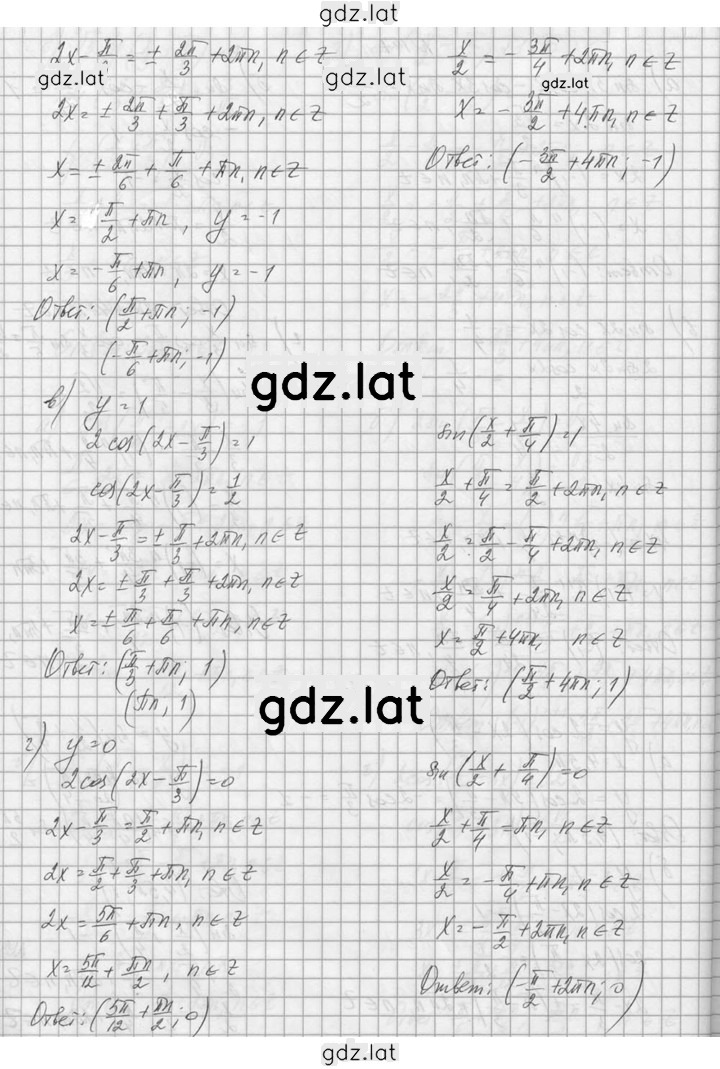 gdz.lat
2x - π/3 = ± 2π/3 + 2πn, n ∈ Z
gdz.lat
2x = ± 2π/3 + π/3 + 2πn, n ∈ Z
x = ± 2π/6 + π/6 + πn, n ∈ Z
x = π/2 + πn, y = -1
x = -π/6 + πn, y = -1
Ответ: (π/2 + πn; -1)
(-π/6 + πn; -1)
x/2 = -3π/4 + 2πn, n ∈ Z
gdz.lat
x = -3π/2 + 4πn, n ∈ Z
Ответ: (-3π/2 + 4πn; -1)
gdz.lat
в) y = 1
2cos(2x - π/3) = 1
cos(2x - π/3) = 1/2
2x - π/3 = ± π/3 + 2πn, n ∈ Z
2x = ± π/3 + π/3 + 2πn, n ∈ Z
x = ± π/6 + π/6 + πn, n ∈ Z
Ответ: (π/3 + πn; 1)
(πn, 1)
sin(x/2 + π/4) = 1
x/2 + π/4 = π/2 + 2πn, n ∈ Z
x/2 = π/2 - π/4 + 2πn, n ∈ Z
x/2 = π/4 + 2πn, n ∈ Z
x = π/2 + 4πn, n ∈ Z
Ответ: (π/2 + 4πn; 1)
gdz.lat
г) y = 0
2cos(2x - π/3) = 0
2x - π/3 = π/2 + πn, n ∈ Z
2x = π/2 + π/3 + πn, n ∈ Z
2x = 5π/6 + πn, n ∈ Z
x = 5π/12 + πn/2, n ∈ Z
Ответ: (5π/12 + πn/2; 0)
sin(x/2 + π/4) = 0
x/2 + π/4 = πn, n ∈ Z
x/2 = -π/4 + πn, n ∈ Z
x = -π/2 + 2πn, n ∈ Z
Ответ: (-π/2 + 2πn; 0)
gdz.lat